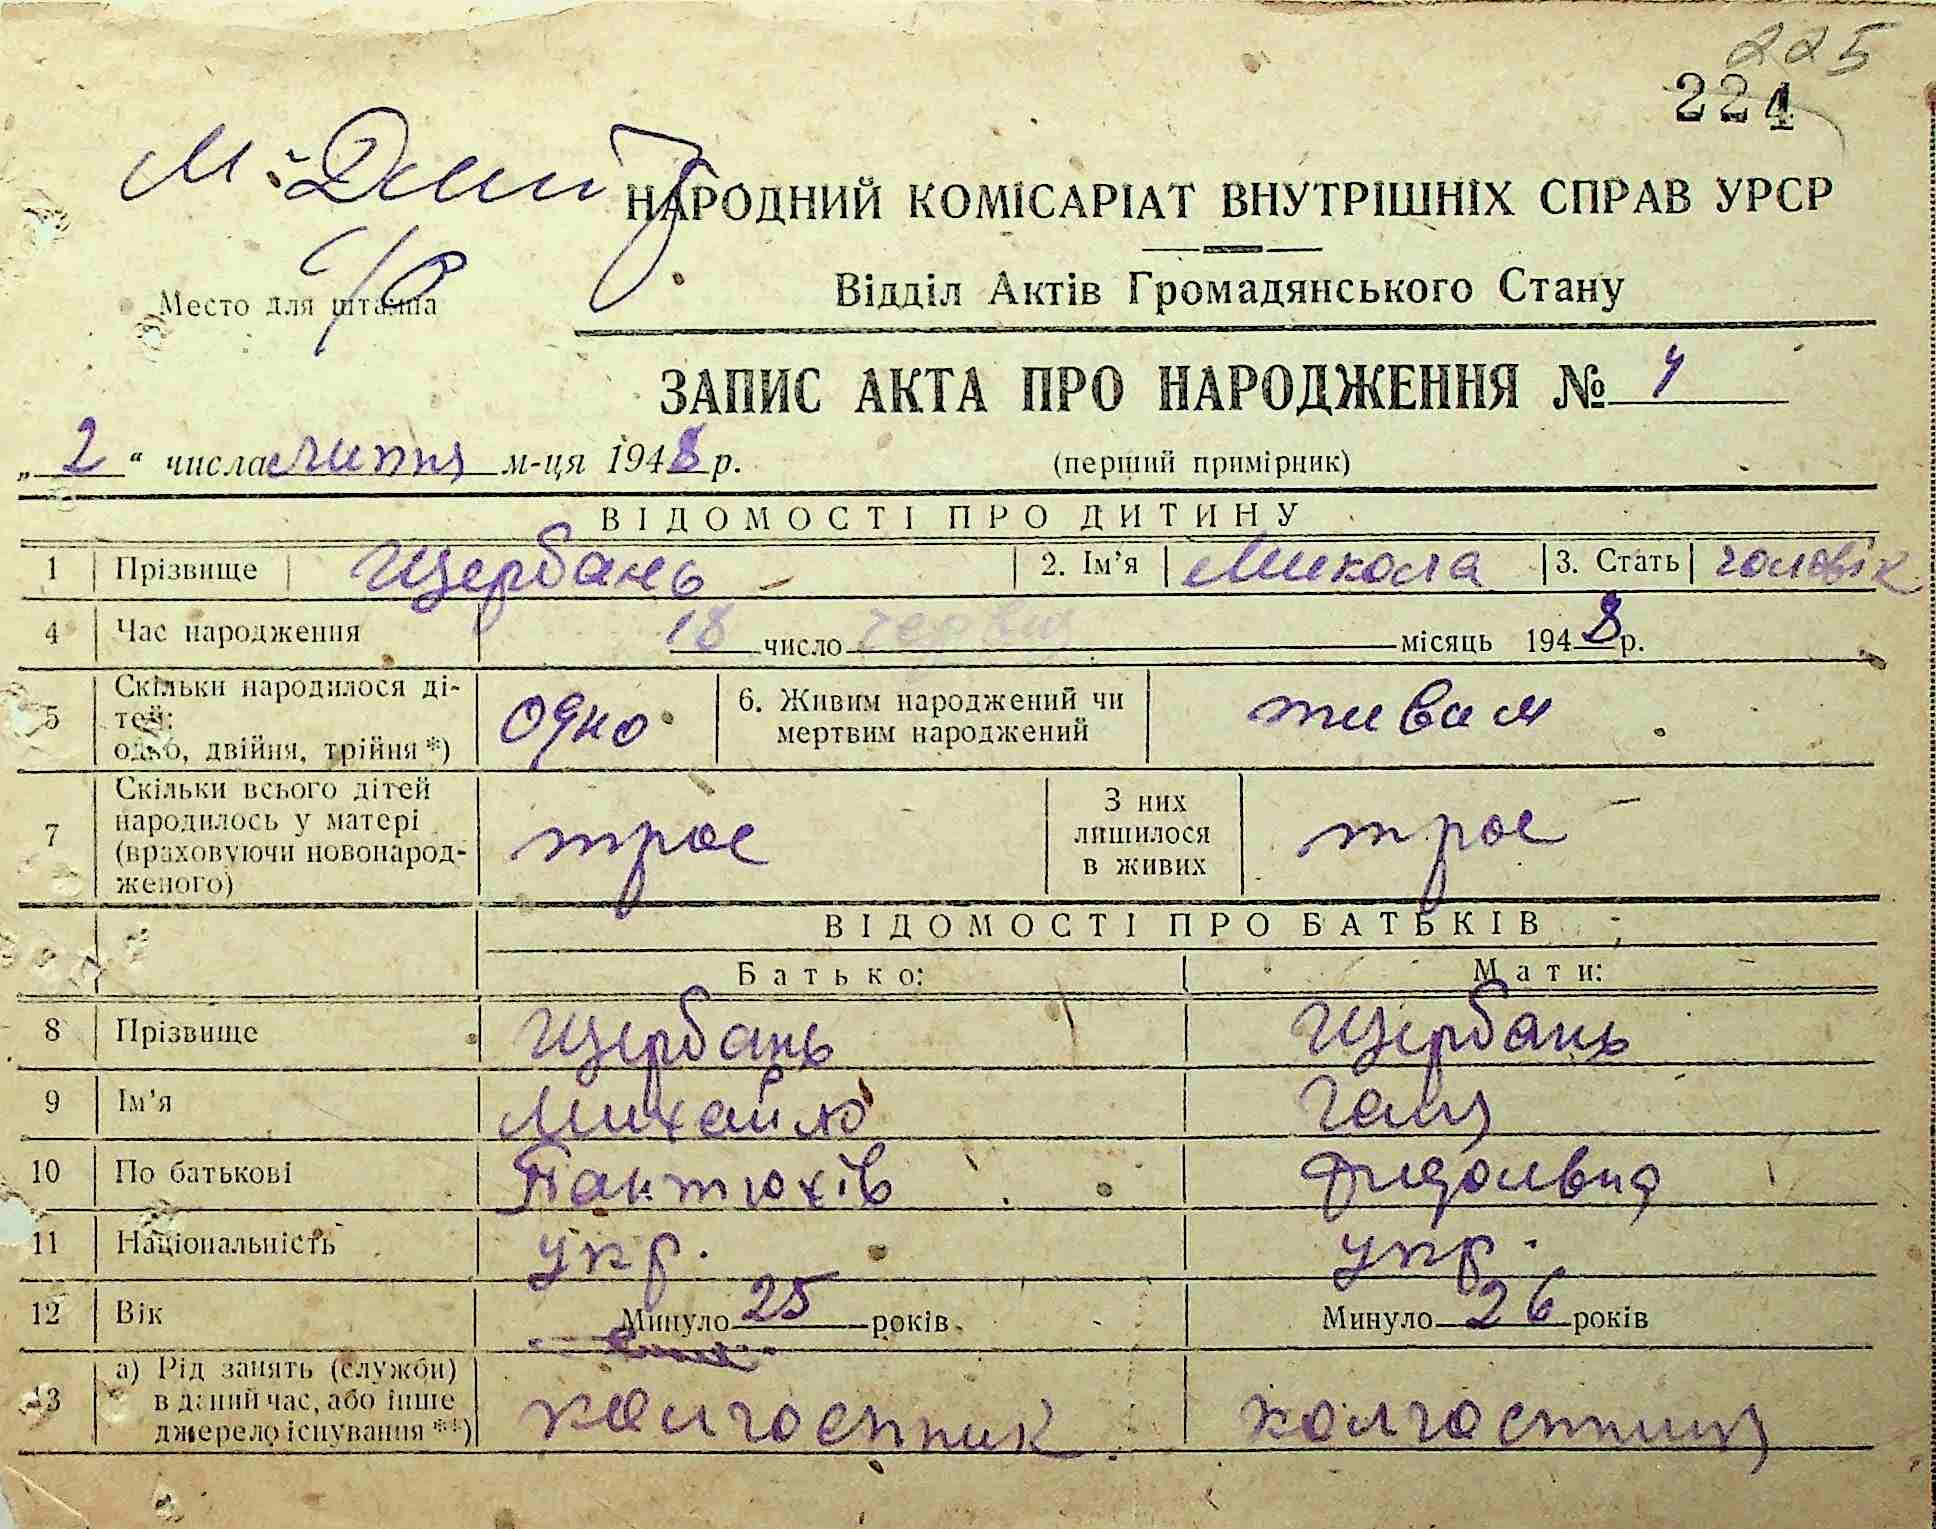 225
224
М-Дми
НАРОДНИЙ КОМІСАРІАТ ВНУТРІШНІХ СПРАВ УРСР
с/р
Відділ Актів Громадянського Стану
Место для штампа
ЗАПИС АКТА ПРО НАРОДЖЕННЯ №
„ 2 “ числа липня м-ця 1948 р. (перший примірник)
ВІДОМОСТІ ПРО ДИТИНУ
1 Прізвище Щербань 2. Ім’я Микола 3. Стать чоловік
4 Час народження 18 число червня місяць 1948 р.
5 Скільки народилося ді-
тей:
одно, двійня, трійня *) одно 6. Живим народжений чи
мертвим народжений живим
7 Скільки всього дітей
народилось у матері
(враховуючи новонарод-
женого) троє З них
лишилося
в живих троє
ВІДОМОСТІ ПРО БАТЬКІВ
Батько: Мати:
8 Прізвище Щербань Щербань
9 Ім’я Михайло Галя
10 По батькові Пантюхів
11 Національність укр. укр.
12 Вік Минуло 25 років Минуло 26 років
13 а) Рід занять (служби)
в даний час, або інше
джерело існування **) колгоспник колгоспниця